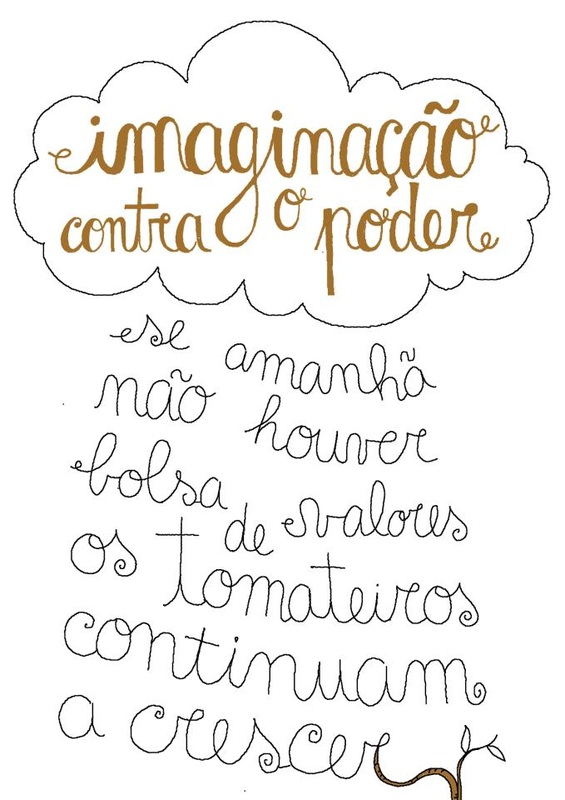 imaginação
contra o poder
se amanhã
não houver
bolsa
de valores
os tomateiros
continuam
a crescer